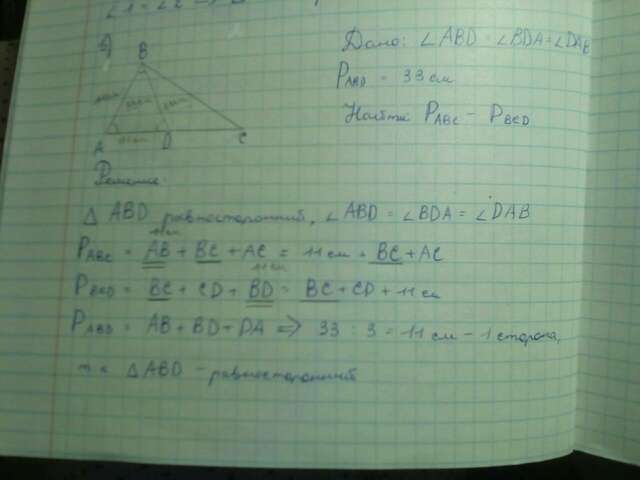 ∠1 = ∠2
B
A
D
C
Дано: ∠ABD = ∠BDA = ∠DAB
P_ABD = 33 см
Найти: P_ABC - P_BCD
Решение:
△ ABD равносторонний, ∠ABD = ∠BDA = ∠DAB
P_ABC = AB + BC + AC = 11 см + BC + AC
11 см
P_BCD = BC + CD + BD = BC + CD + 11 см
P_ABD = AB + BD + DA => 33 : 3 = 11 см - 1 сторона,
т к △ ABD - равносторонний